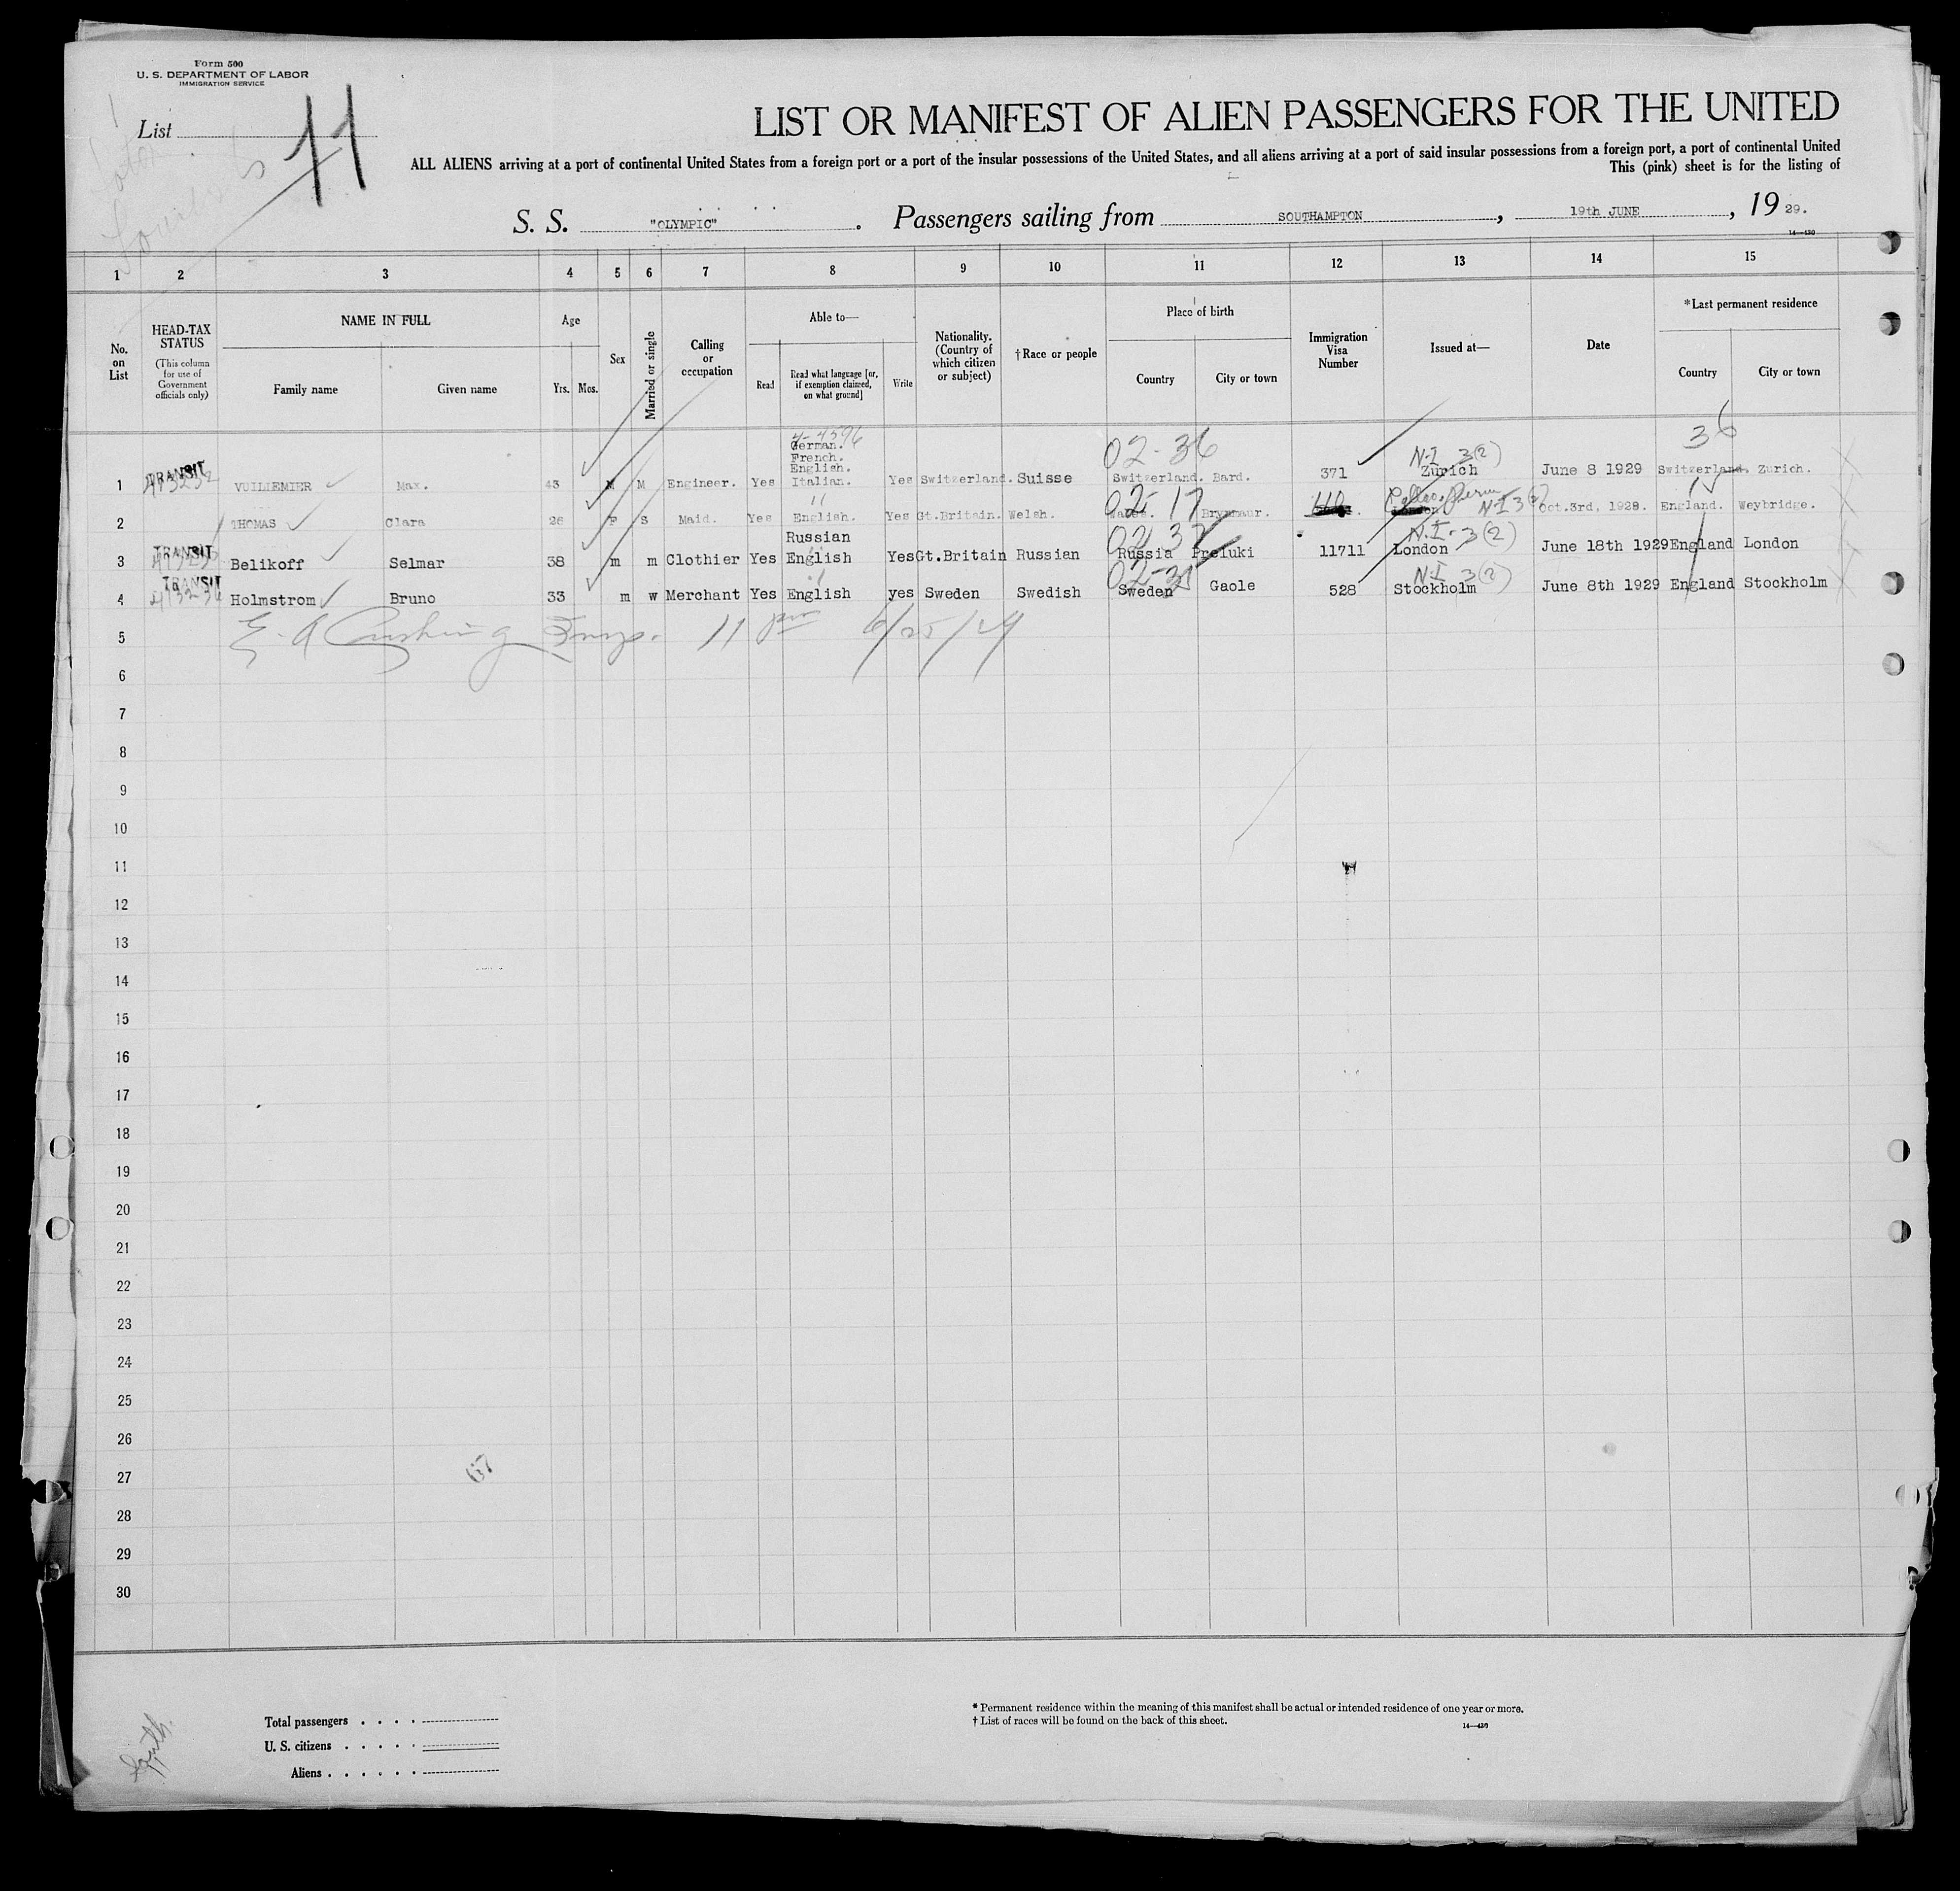 Form 500
U. S. DEPARTMENT OF LABOR
IMMIGRATION SERVICE
List 11
LIST OR MANIFEST OF ALIEN PASSENGERS FOR THE UNITED
ALL ALIENS arriving at a port of continental United States from a foreign port or a port of the insular possessions of the United States, and all aliens arriving at a port of said insular possessions from a foreign port, a port of continental United
This (pink) sheet is for the listing of
S. S. "OLYMPIC". Passengers sailing from SOUTHAMPTON, 19th JUNE, 19 29.
14—430
1 2 3 4 5 6 7 8 9 10 11 12 13 14 15
No. on List
HEAD-TAX STATUS (This column for use of Government officials only)
NAME IN FULL Family name Given name
Age Yrs. Mos.
Sex
Married or single
Calling or occupation
Able to— Read Read what language [or, if exemption claimed, on what ground] Write
Nationality. (Country of which citizen or subject)
†Race or people
Place of birth Country City or town
Immigration Visa Number
Issued at—
Date
*Last permanent residence Country City or town
4-4596
02-36 N.I 3(2) 36
German.
French.
English.
1 TRANSIT VUILLEMIER Max. 43 M M Engineer. Yes Italian. Yes Switzerland. Suisse Switzerland. Bard. 371 Zurich June 8 1929 Switzerland. Zurich.
02-17 N-I 3(2)
2 THOMAS Clara 26 F S Maid. Yes English. Yes Gt.Britain. Welsh. Wales. Brynmaur. London Oct.3rd, 1928. England. Weybridge.
Russian N.I. 3(2)
3 TRANSIT Belikoff Selmar 38 m m Clothier Yes English Yes Gt.Britain Russian Russia Preluki 11711 London June 18th 1929 England London
N.I 3(2)
4 TRANSIT Holmstrom Bruno 33 m w Merchant Yes English yes Sweden Swedish Sweden Gaole 528 Stockholm June 8th 1929 England Stockholm
5 E. A Cushing Insp. 11 pm 6/25/29
6
7
8
9
10
11
12
13
14
15
16
17
18
19
20
21
22
23
24
25
26
27
67
28
29
30
* Permanent residence within the meaning of this manifest shall be actual or intended residence of one year or more.
† List of races will be found on the back of this sheet.
14—430
Total passengers
U. S. citizens
Aliens